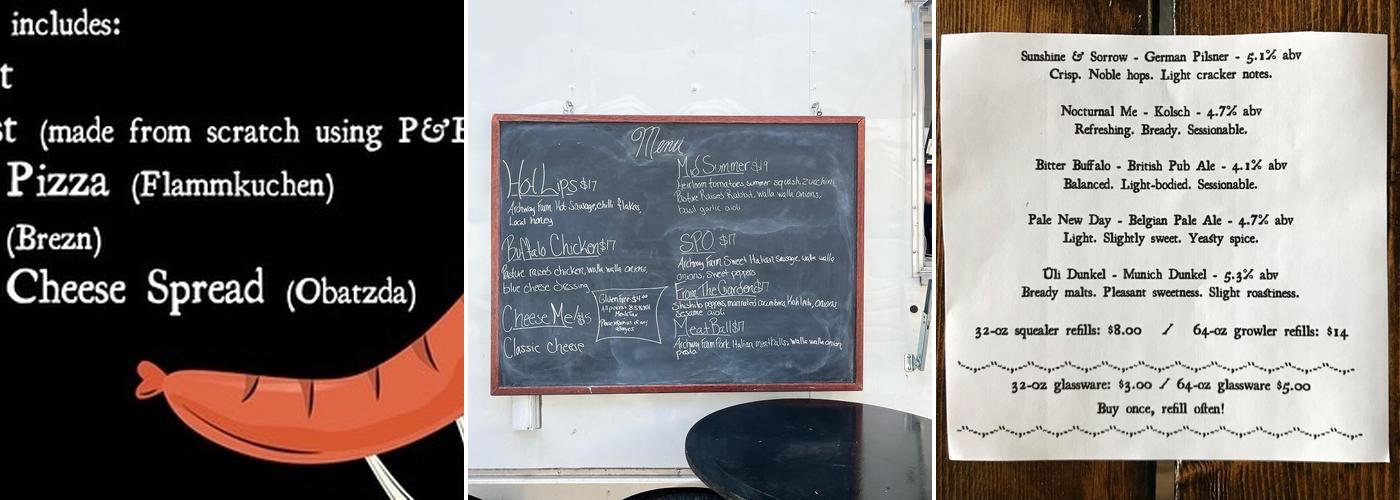 includes:
t
st (made from scratch using P&
Pizza (Flammkuchen)
(Brezn)
Cheese Spread (Obatzda)
Menu
Hot Lips $17
Archway Farm Hot Sausage, chilli flakes,
Local honey
Buffalo Chicken $17
Pasture raised chicken, walla walla onions,
blue cheese dressing
Cheese Me! $15
Classic cheese
Gluten Free
Mid Summer $19
Heirloom tomatoes, summer squash, zucchini,
Pasture Raised Rabbit, walla walla onions,
basil garlic aioli
SPO $17
Archway Farm Sweet Italian Sausage, walla walla
onions, sweet peppers
From The Garden $17
Shishito peppers, marinated cucumbers, onions,
sesame aioli
MeatBall $17
Archway Farm Pork Italian meatballs, walla walla onion
pesto
Sunshine & Sorrow - German Pilsner - 5.1% abv
Crisp. Noble hops. Light cracker notes.
Nocturnal Me - Kolsch - 4.7% abv
Refreshing. Bready. Sessionable.
Bitter Buffalo - British Pub Ale - 4.1% abv
Balanced. Light-bodied. Sessionable.
Pale New Day - Belgian Pale Ale - 4.7% abv
Light. Slightly sweet. Yeasty spice.
Üli Dunkel - Munich Dunkel - 5.3% abv
Bready malts. Pleasant sweetness. Slight roastiness.
32-oz squealer refills: $8.00 / 64-oz growler refills: $14
32-oz glassware: $3.00 / 64-oz glassware $5.00
Buy once, refill often!